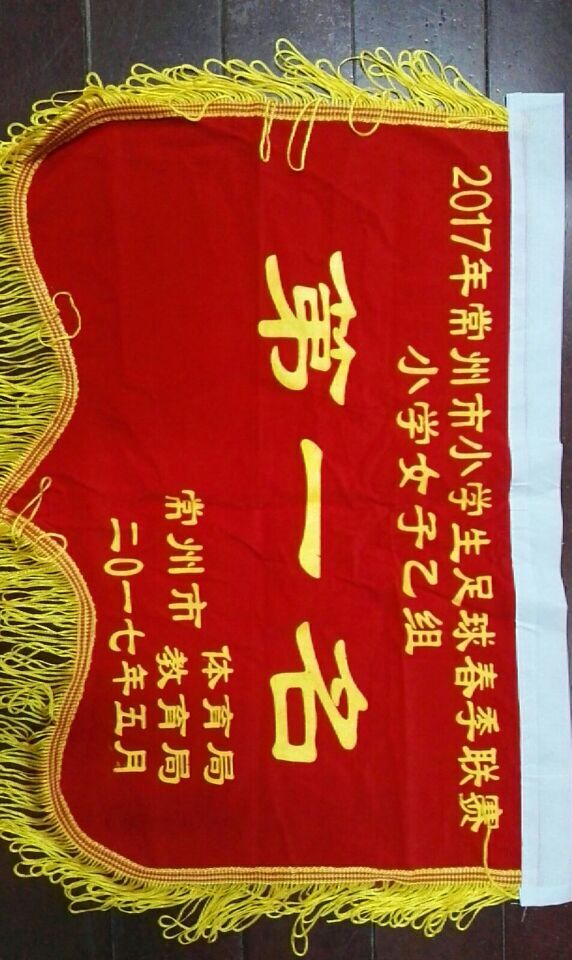 2017年常州市小学生足球春季联赛
小学女子乙组
第一名
体育局
常州市
教育局
二〇一七年五月